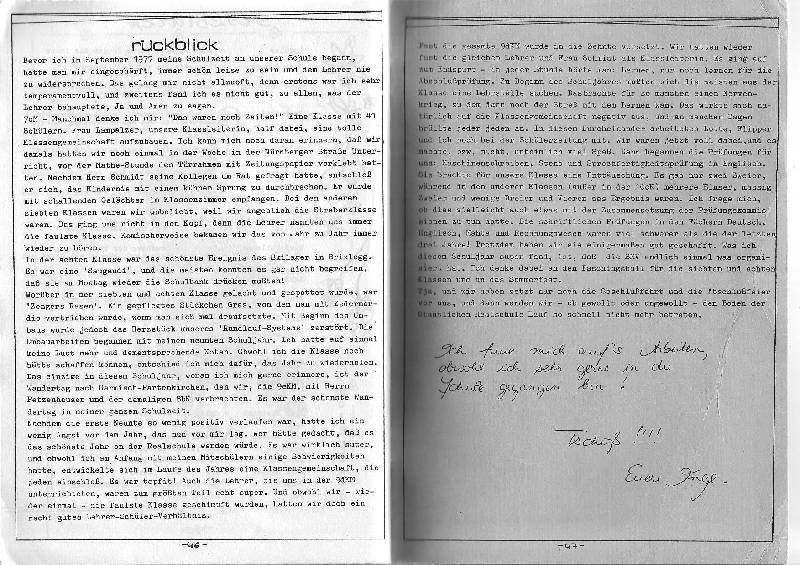 rückblick
Bevor ich im September 1977 meine Schulzeit an unserer Schule begann,
hatte man mir eingeschärft, immer schön leise zu sein und dem Lehrer nie
zu widersprechen. Das gelang mir nicht allzuoft, denn erstens war ich sehr
temperamentvoll, und zweitens fand ich es nicht gut, zu allem, was der
Lehrer behauptete, Ja und Amen zu sagen.
7dM - Manchmal denke ich mir: "Das waren noch Zeiten!" Eine Klasse mit 41
Schülern. Frau Hampelzer, unsere Klassleiterin, half dabei, eine tolle
Klassengemeinschaft aufzubauen. Ich kann mich noch daran erinnern, daß wir
damals hatten wir noch einmal in der Woche in der Nürnberger Straße Unter-
richt, vor der Mathe-Stunde den Türrahmen mit Zeitungspapier verklebt hat-
ten. Nachdem Herr Schmidt seine Kollegen um Rat gefragt hatte, entschloß
er sich, das Hindernis mit einem kühnen Sprung zu durchbrechen. Er wurde
mit schallenden Gelächter im Klassenzimmer empfangen. Bei den anderen
siebten Klassen waren wir unbeliebt, weil wir angeblich die Streberklasse
waren. Das ging uns nicht in den Kopf, denn die Lehrer nannten uns immer
die faulste Klasse. Komischerweise bekamen wir das von Jahr zu Jahr immer
wieder zu hören.
In der achten Klasse war das schönste Ereignis das Skilager in Brixlegg.
Es war eine 'Saugaudi', und die meisten konnten es gar nicht begreifen,
daß sie am Montag wieder die Schulbank drücken mußten!
Worüber in der siebten und achten Klasse gelacht und gespottet wurde, war
"Zeagers Rasen". Ein gepflegtes Stückchen Gras, von dem man mit Zetermor-
dio vertrieben wurde, wenn man sich mal draufsetzte. Mit Beginn des Um-
baus wurde jedoch das Herzstück unseres 'Rundlauf-Systems' zerstört. Die
Umbauarbeiten begannen mit meinem neunten Schuljahr. Ich hatte auf einmal
keine Lust mehr und dementsprechende Noten. Obwohl ich die Klasse noch
hätte schaffen können, entschied ich mich dafür, das Jahr zu wiederholen.
Das einzige in diesem Schuljahr, woran ich mich gerne erinnere, ist der
Wandertag nach Garmisch-Partenkirchen, den wir, die 9cKM, mit Herrn
Petzenhauser und der damaligen 8bK verbrachten. Es war der schönste Wan-
dertag in meiner ganzen Schulzeit.
Nachdem die erste Neunte so wenig positiv verlaufen war, hatte ich ein
wenig Angst vor dem Jahr, das nun vor mir lag. Wer hätte gedacht, daß es
das schönste Jahr an der Realschule werden würde. Es war wirklich super,
und obwohl ich am Anfang mit meinen Mitschülern einige Schwierigkeiten
hatte, entwickelte sich im Laufe des Jahres eine Klassengemeinschaft, die
jeden einschloß. Es war topfit! Auch die Lehrer, die uns in der 9dKM
unterrichteten, waren zum größten Teil echt super. Und obwohl wir - wie-
der einmal - die faulste Klasse geschimpft wurden, hatten wir doch ein
recht gutes Lehrer-Schüler-Verhältnis.
-46-
Fast die gesamte 9dKM wurde in die Zehnte versetzt. Wir hatten wieder
fast die gleichen Lehrer und Frau Schmidt als Klassleiterin. Es ging auf
zum Endspurt - in jeder Stunde hörte man: Lernen, nur noch lernen für die
Abschlußprüfung. Zu Beginn des Schuljahres mußten sich die meisten aus der
Klasse eine Lehrstelle suchen. Das brachte für so manchen einen Nerven-
krieg, zu dem dann noch der Streß mit dem Lernen kam. Das wirkte sich na-
türlich auf die Klassengemeinschaft negativ aus, und an manchen Tagen
brüllte jeder jeden an. In diesem Durcheinander arbeiteten Lotte, Flipper
und ich noch bei der Schülerzeitung mit. Wir waren jetzt voll dabei, und es
machte, bzw. macht, unheimlich viel Spaß. Dann begannen die Prüfungen für
uns: Maschinenschreiben, Steno und Sprechfertigkeitsprüfung in Englisch.
Sie brachte für unsere Klasse eine Enttäuschung. Es gab nur zwei Zweier,
während in den anderen Klassen (außer in der 10cKM) mehrere Einser, massig
Zweier und wenige Dreier und Vierer das Ergebnis waren. Ich frage mich,
ob dies vielleicht auch etwas mit der Zusammensetzung der Prüfungskommis
sionen zu tun hatte. Die schriftlichen Prüfungen in den Fächern Deutsch,
Englisch, Mathe und Rechnungswesen waren viel schwerer als die der letzten
drei Jahre! Trotzdem haben wir sie einigermaßen gut geschafft. Was ich
diesem Schuljahr super fand, ist, daß die SMV endlich einmal was organi-
siert hat. Ich denke dabei an den Faschingsball für die siebten und achten
Klassen und an das Sommerfest.
Tja, und wir haben jetzt nur noch die Abschlußfahrt und die Abschlußfeier
vor uns, und dann werden wir - ob gewollt oder ungewollt - den Boden der
Staatlichen Realschule Lauf so schnell nicht mehr betreten.
Ich freue mich auf's Arbeiten,
obwohl ich sehr gerne in die
Schule gegangen bin!
Tschüß!!!!
Eure Inge.
-47-